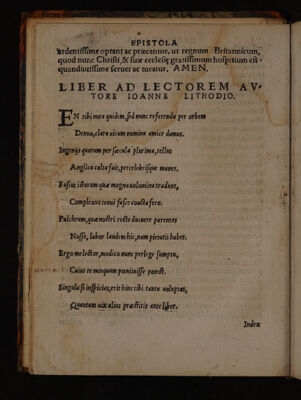 EPISTOLA
ardentissime optant ac præcantur, ut regnum Britannicum,
quod nunc Christi, & suæ ecclesię gratissimum hospitium est
quandiutissime seruet ac tueatur. AMEN.
LIBER AD LECTOREM AV-
TORE IOANNE LITHODIO.
EN tibi nota quidem, sed nunc referenda per orbem
Denuo, clara uirum nomina amice damus.
Ingenijs quorum per sæcula plurima, tellus
Anglica culta fuit, percelebrisque manet.
Fusius istorum quæ magno uolumine tradunt,
Complexus tenui fasce coacta fero.
Pulchrum, quæ nostri recte docuere parentes
Nosse, labor laudem hic, nam pietatis habet.
Ergo me lector, modico nunc perlege sumptu,
Cuius te nunquam pœnituisse potest.
Singula si inspicias, erit hinc tibi tanta uoluptas,
Quantam uix alius præstitit ante liber.
Index